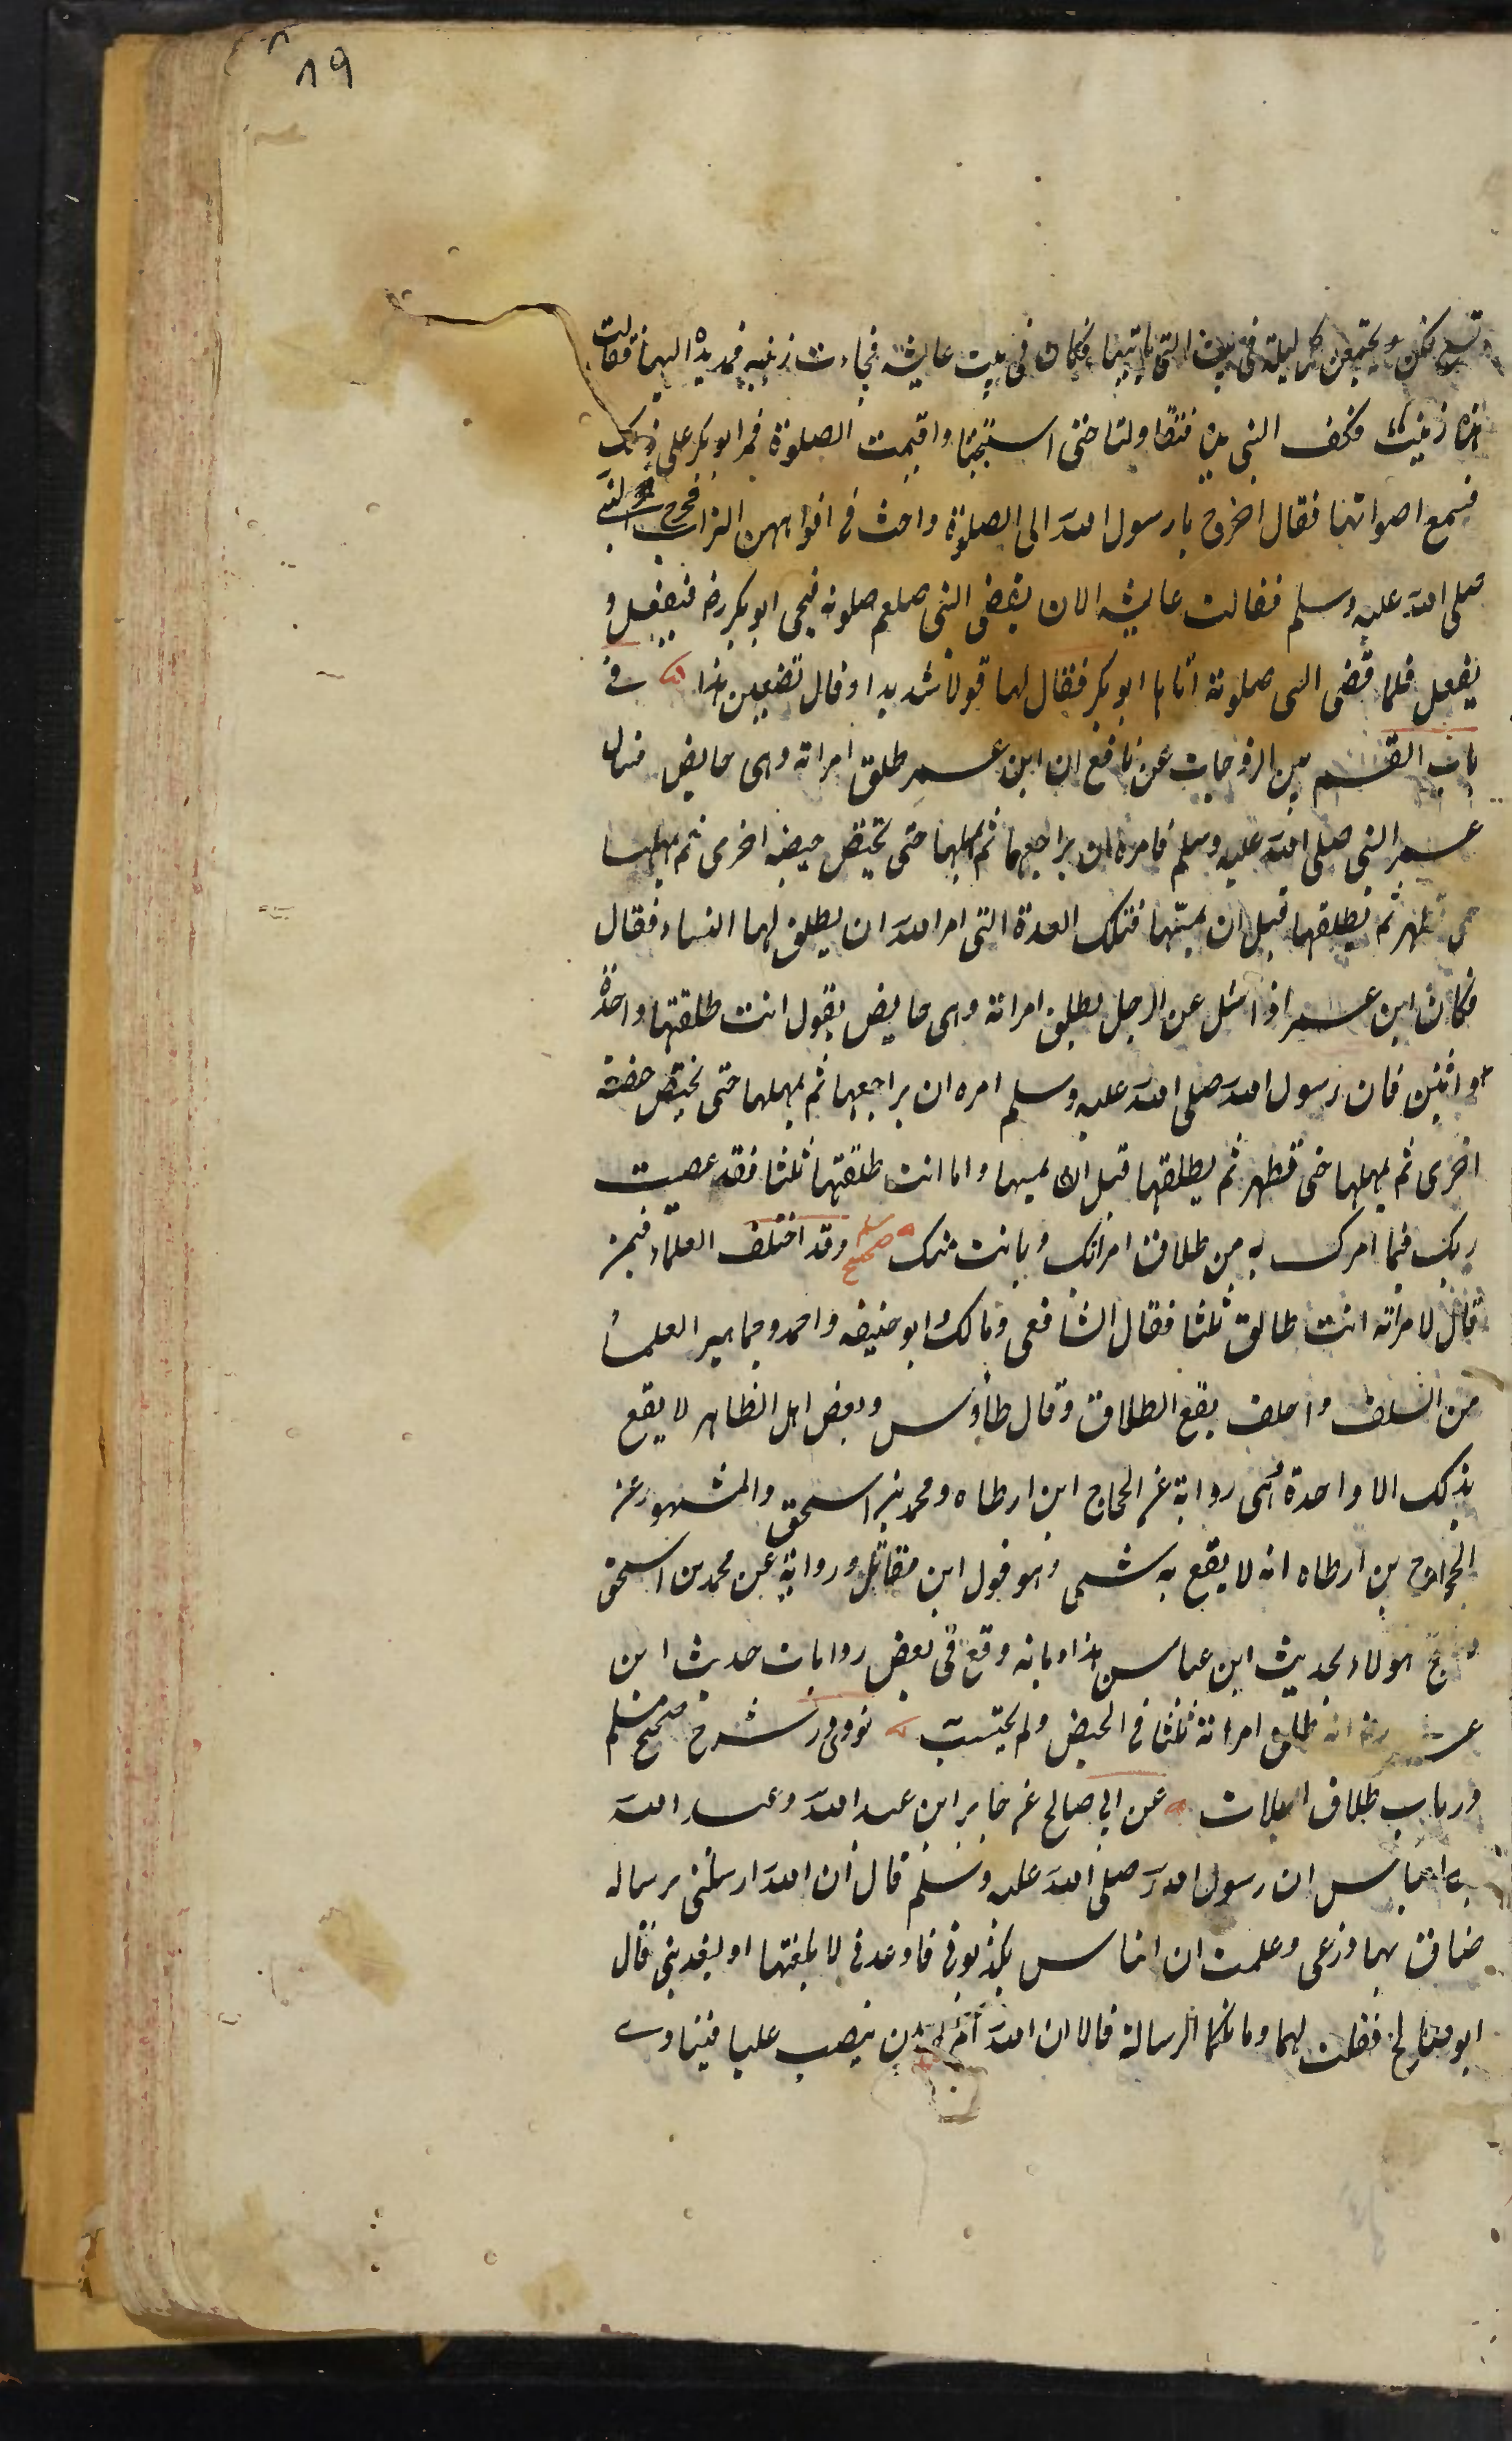 ١٩
تسع فكن يجتمعن كل ليلة فى بيت التى ياتيها فكان فى بيت عايشة فجاءت زينب فمد يده اليها فقالت
هذه زينب فكف النبى يده فتقاولتا حتى استخبتا واقيمت الصلوة فمر ابو بكر على ذلك
فسمع اصواتهما فقال اخرج يا رسول الله الى الصلوة واحث فى افواههن التراب فخرج النبى
صلى الله عليه وسلم فقالت عايشة الان يقضى النبى صلعم صلوته فيجى ابو بكر رضه فيفعل و
يفعل فلما قضى النبى صلوته اتاها ابو بكر فقال لها قولا شديدا وقال تصنعين هذا فى
باب القسم بين الزوجات عن نافع ان ابن عمر طلق امراته وهى حايض فسال
عمر النبى صلى الله عليه وسلم فامره ان يراجعها ثم يمهلها حتى تحيض حيضة اخرى ثم يمهلها
حتى تطهر ثم يطلقها قبل ان يمسها فتلك العدة التى امر الله ان يطلق لها النساء فقال
فكان ابن عمر اذا سئل عن الرجل يطلق امراته وهى حايض يقول انت طلقتها واحدة
او اثنين فان رسول الله صلى الله عليه وسلم امره ان يراجعها ثم يمهلها حتى تحيض حيضة
اخرى ثم يمهلها حتى تطهر ثم يطلقها قبل ان يمسها واما انت طلقتها ثلثا فقد عصيت
ربك فيما امرك به من طلاق امراتك وبانت منك صحيح مسلم وقد اختلف العلماء فيمن
قال لامراته انت طالق ثلثا فقال الشافعى ومالك وابو حنيفه واحمد وجماهير العلماء
من السلف والخلف يقع الطلاق وقال طاوس وبعض اهل الظاهر لا يقع
بذلك الا واحدة وهى رواية عن الحجاج ابن ارطاه ومحمد بن اسحق والمشهور عن
الحجاج بن ارطاه انه لا يقع به شى وهو قول ابن مقاتل ورواية عن محمد بن اسحق
واحتج هولاء بحديث ابن عباس هذا وبانه وقع فى بعض روايات حديث ابن
عمر رضه انه طلق امراته ثلثا فى الحيض ولم يحتسب نووى در شرح صحيح مسلم
در باب طلاق الثلاث عن ابى صالح عن جابر ابن عبد الله وعبد الله
بن العباس ان رسول الله صلى الله عليه وسلم قال ان الله ارسلنى برسالة
ضاقت بها ذرعى وعلمت ان الناس يكذبونى فاوعدنى لابلغنها او ليعذبنى قال
ابو صالح فقلت لهما وما تلكما الرسالة قالا ان الله امره ان ينصب عليا فينا وے